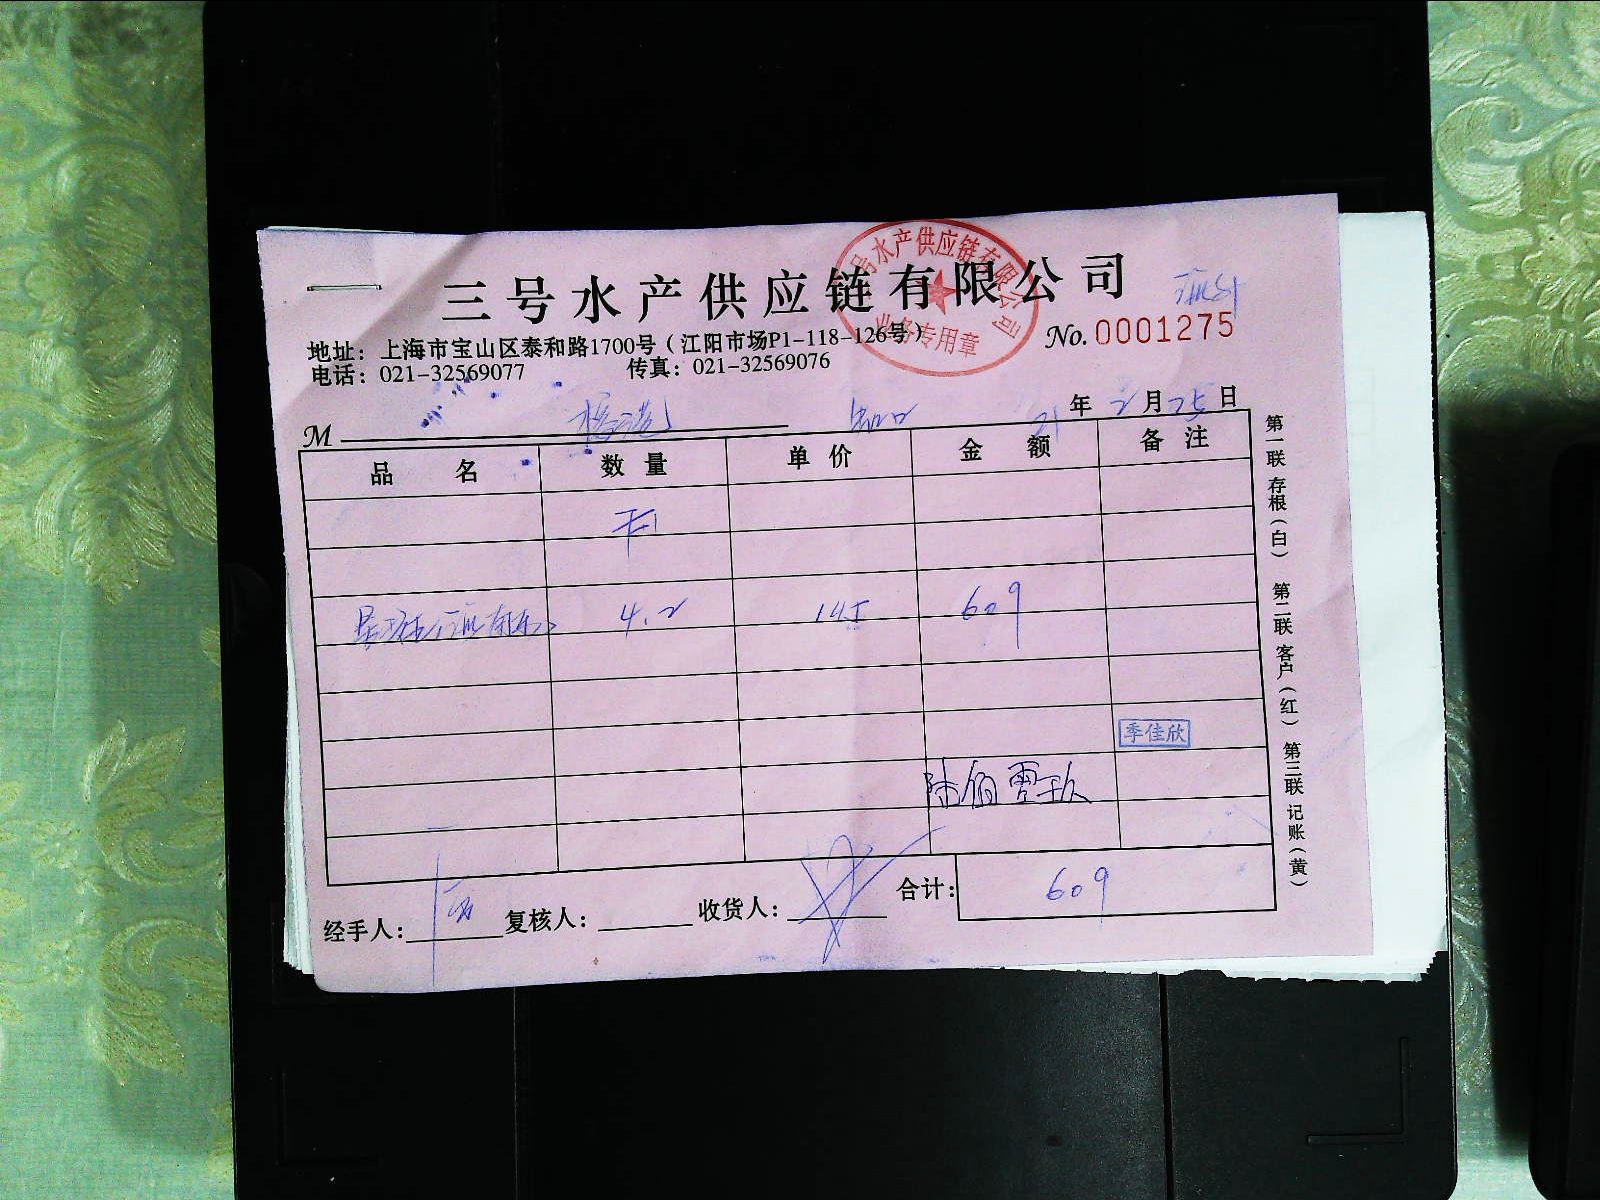 三号水产供应链有限公司
三号水产供应链有限公司
业务专用章
地址：上海市宝山区泰和路1700号（江阳市场P1-118-126号）
No. 0001275
电话：021-32569077 传真：021-32569076
M
21年2月25日
品名 数量 单价 金额 备注
斤
4.2 145 609
季佳欣
经手人： 复核人： 收货人： 合计： 609
第一联 存根（白） 第二联 客户（红） 第三联 记账（黄）